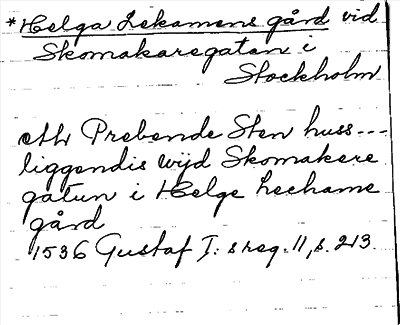 *Helga Lekamens gård vid
Skomakaregatan i
Stockholm
ett Prebende Sten huss---
liggendis wijd Skomakere
gatun i Helge Leehame
gård
1536 Gustaf I:s reg. 11, s. 213.